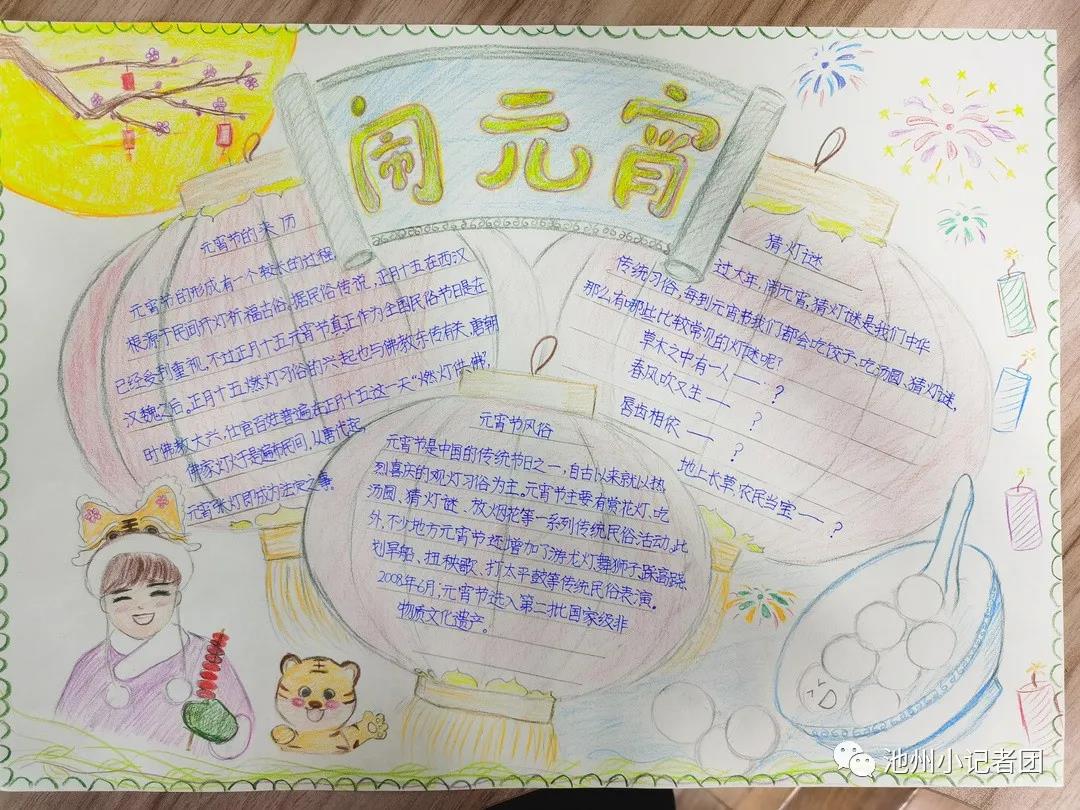 闹元宵
元宵节的来历
元宵节的形成有一个较长的过程
根源于民间开灯祈福古俗。据民俗传说,正月十五在西汉
已经受到重视,不过正月十五元宵节真正作为全国民俗节日是在
汉魏之后。正月十五燃灯习俗的兴起也与佛教东传有关,唐朝
时佛教大兴,仕官百姓普遍在正月十五这一天“燃灯供佛”,
佛家灯火于是遍布民间,从唐代起,
元宵张灯即成为法定之事。
元宵节风俗
元宵节是中国的传统节日之一,自古以来就以热
烈喜庆的观灯习俗为主。元宵节主要有赏花灯、吃
汤圆、猜灯谜、放烟花等一系列传统民俗活动。此
外,不少地方元宵节还增加了游龙灯、舞狮子、踩高跷、
划旱船、扭秧歌、打太平鼓等传统民俗表演。
2008年6月,元宵节选入第二批国家级非
物质文化遗产。
猜灯谜
过大年,闹元宵,猜灯谜是我们中华
传统习俗,每到元宵节我们都会吃饺子、吃汤圆、猜灯谜,
那么有哪些比较常见的灯谜呢?
草木之中有一人——?
春风吹又生——?
唇齿相依——?
地上长草,农民当宝——?
池州小记者团